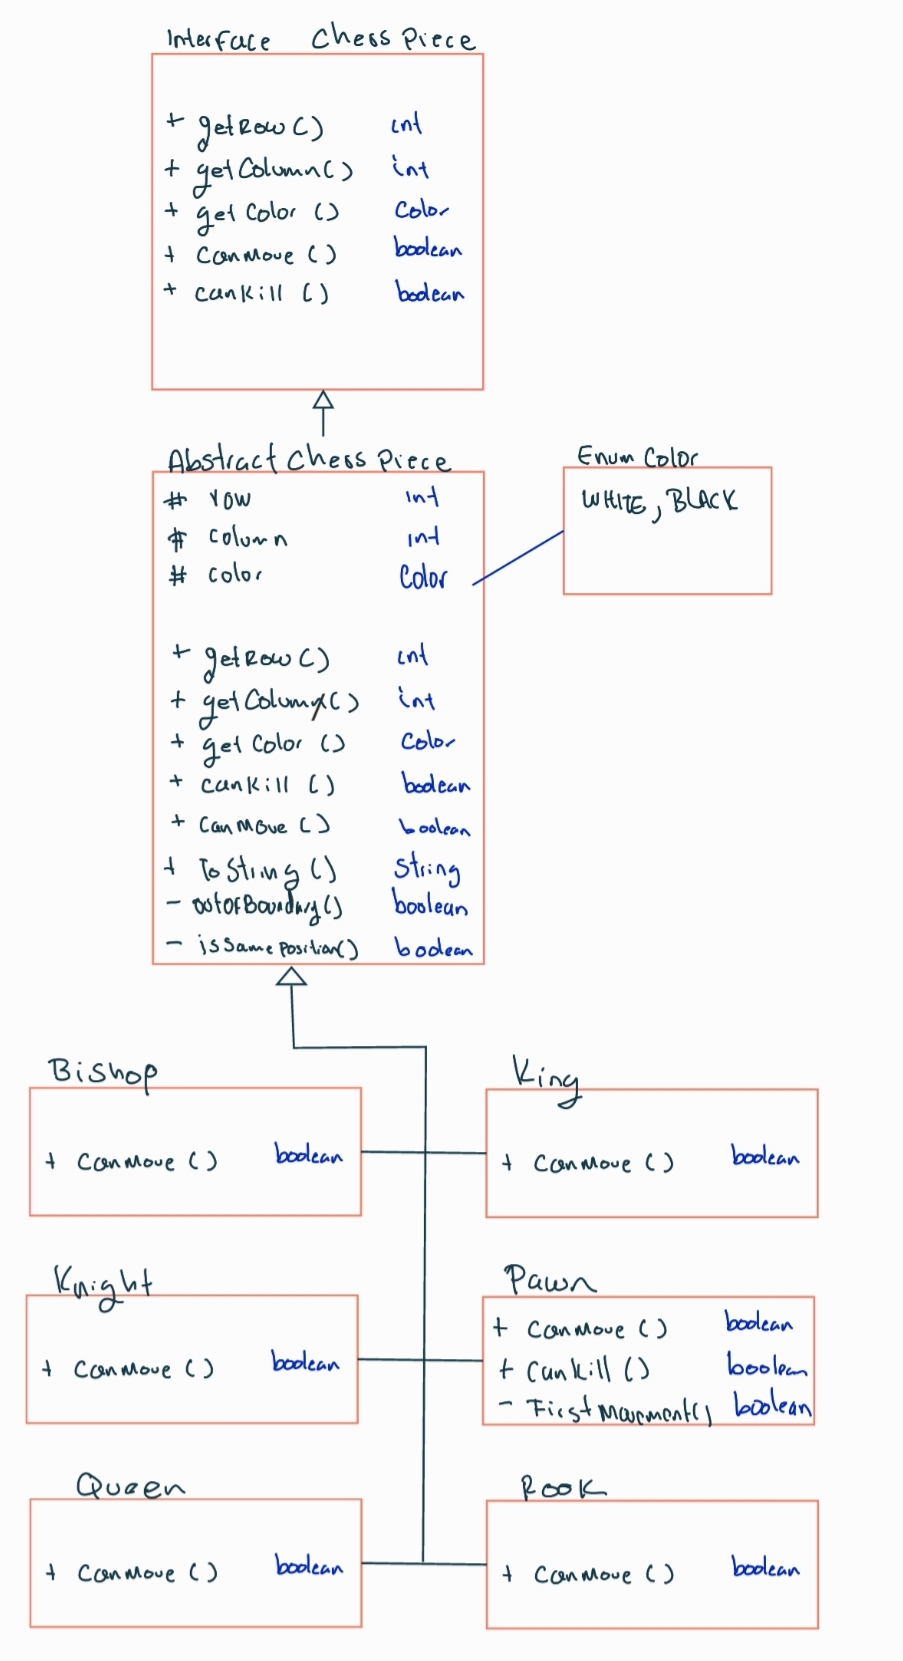 Interface Chess Piece
+ getRow() int
+ getColumn() int
+ getColor () Color
+ canMove () boolean
+ canKill () boolean
Abstract Chess Piece
# row int
# column int
# color Color
Enum Color
WHITE, BLACK
+ getRow() int
+ getColumn() int
+ getColor () Color
+ canKill () boolean
+ canMove () boolean
+ ToString () String
- outOfBoundary() boolean
- isSamePosition() boolean
Bishop
+ canMove () boolean
King
+ canMove () boolean
Knight
+ canMove () boolean
Pawn
+ canMove () boolean
+ canKill () boolean
- FirstMovement() boolean
Queen
+ canMove () boolean
Rook
+ canMove () boolean